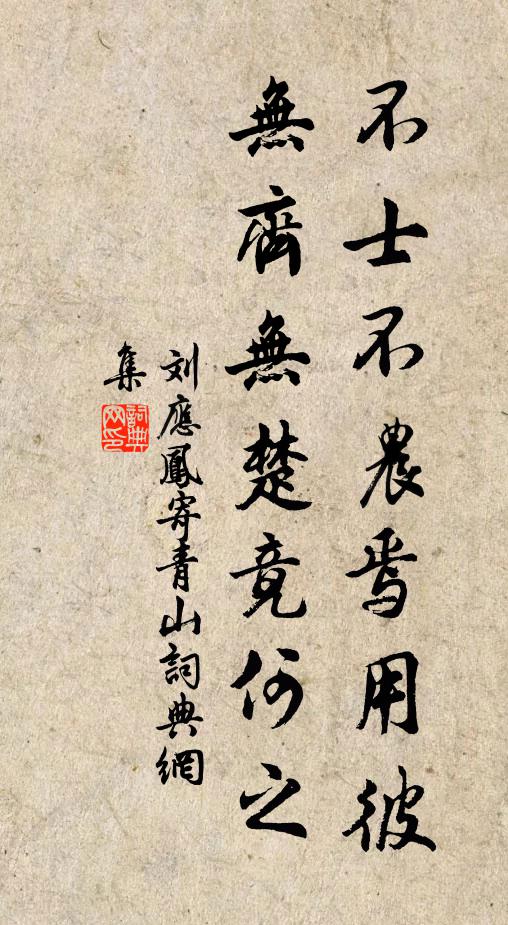 不士不農焉用彼
無齊無楚竟何之
刘應鳳寄青山詞典網
集
詞典網印